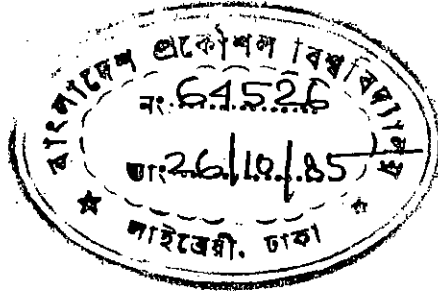 বাংলাদেশ প্রকৌশল বিশ্ববিদ্যালয়
নং 64526
তাং 26/10/85
লাইব্রেরী, ঢাকা